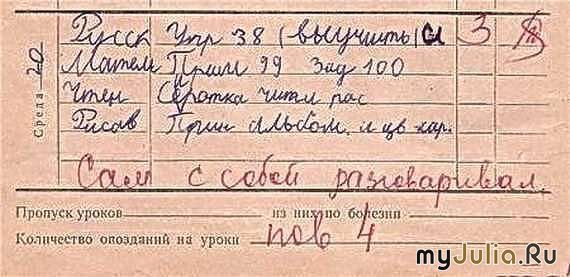 Среда 20
Русск Упр 38 (выучить) и 3
Матем Прим 99 Зад 100
Чтен Сиротка читл рас
Рисов Прин альбом. и цв кар.
Сам с собой разговаривал.
Пропуск уроков из них по болезни
Количество опозданий на уроки пов 4
myJulia.Ru